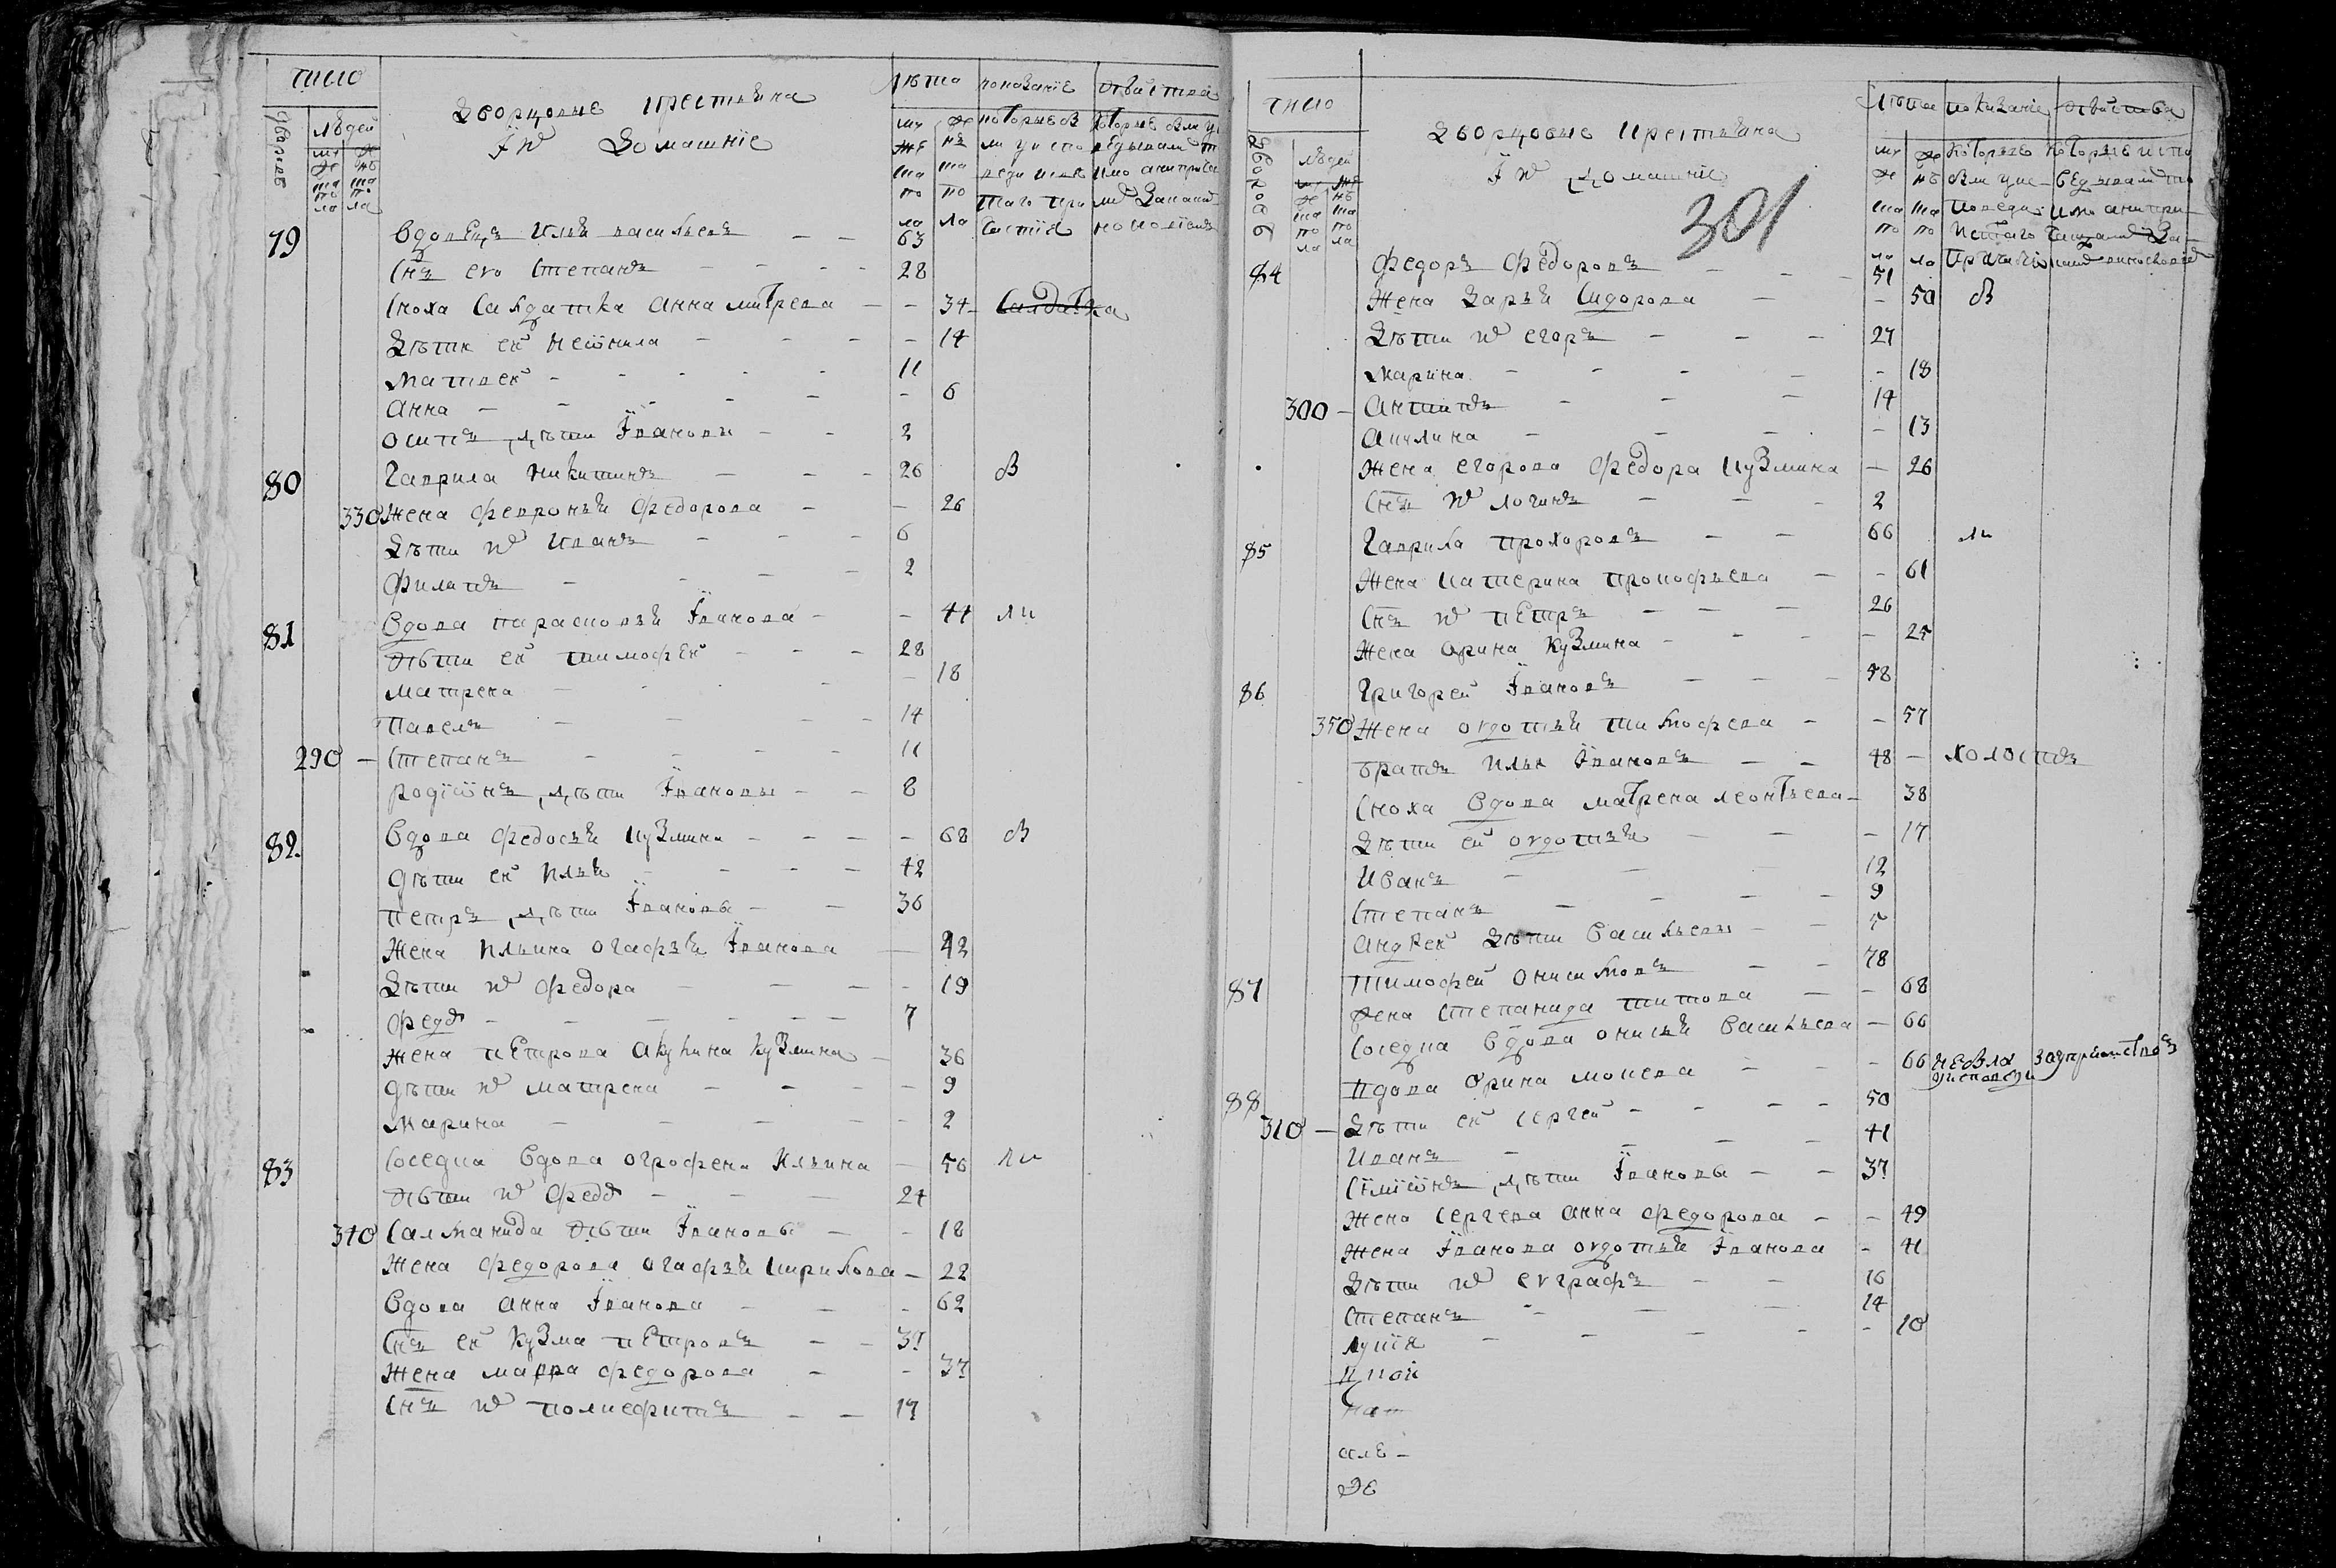 число
дворовъ
людей
мужеска пола
женска пола
Дворцовые крестьяня
и ихъ Домашніе
Лѣта
показаніе
79 вдовецъ Илья васильевъ – – 63
Снъ его Степанъ – – – 28
Сноха Салдатка анна митрева – – 34 Салдатка
Дѣти ея неонила – – – 14
матвей – – – 11
анна – – – 6
осипъ дѣти Ївановы – – 2
80 Гаврила никитинъ – – – 26 в
330 Жена февронья федорова – – 26
Дѣти их иванъ – – – 6
филипъ – – – 2
81 Вдова парасковья Ївановна – – 44 ли
Дѣти ея тимофей – – – 28
матрена – – – 18
павелъ – – – 14
290 – Степанъ – – – 11
родїонъ дѣти Ївановы – – 8
82. Вдова федосья кузмина – – – 68 в
Дѣти ея илья – – – 42
петръ дѣти Ївановы – – 36
Жена ильина огафья Їванова – 42
Дѣти их федора – – – 19
федоръ – – – 7
Жена петрова акулина кузмина – 36
дѣти их матрена – – – 9
марина – – – 2
83 Соседка вдова огрофена ильина – 56 ли
Дѣти их федоръ – – – 24
340 Салманида дѣти Ївановы – – 18
Жена федорова огафья кирилова – 22
Вдова анна Їванова – – 62
Снъ ея кузма петровъ – – 37
Жена мавра федорова – – 37
Снъ их поликфитъ – – 17
число
дворовъ
людей
Дворцовые крестьяня
и ихъ Домашніе
301
Лѣта показаніе
84 федоръ федоровъ – – – 51
Жена дарья Сидорова – – 50 в
Дѣти их егоръ – – – 27
марина – – – 18
300 – антипъ – – – 14
акулина – – – 13
Жена егорова федора кузмина – 26
Снъ их логинъ – – – 2
85 Гаврила прохоровъ – – 66 ли
Жена катерина прокофьева – – 61
Снъ их петръ – – – 26
Жена орина кузмина – – – 25
86 Григорей Їванов – – – 58
350 Жена овдотья тимофева – – 57
братъ илья Ївановъ – – 48 – холостъ
Сноха вдова матрена леонтьева – 38
Дѣти ея овдотья – – – 17
Иванъ – – 12
Степанъ – – – 9
андрей дѣти васильевы – – 5
87 Тимофей онисимовъ – – 78
Жена Степанида титова – – 68
Соседка вдова онисья васильева – 66
88 Вдова орина мокева – – – 66
310 – Дѣти ея сергей – – – 50
Иванъ – – – 41
Семїонъ дѣти Ївановы – – 37
Жена сергева анна федорова – – 49
Жена Їванова овдотья Їванова – 41
Дѣти их евграфъ – – 16
Степанъ – – – 14
лукія – – – 10